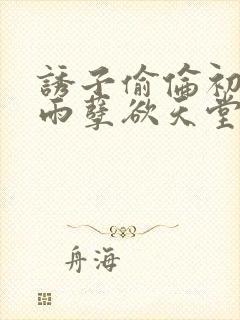 誘子偷倫初
雨孽欲天堂
舟海